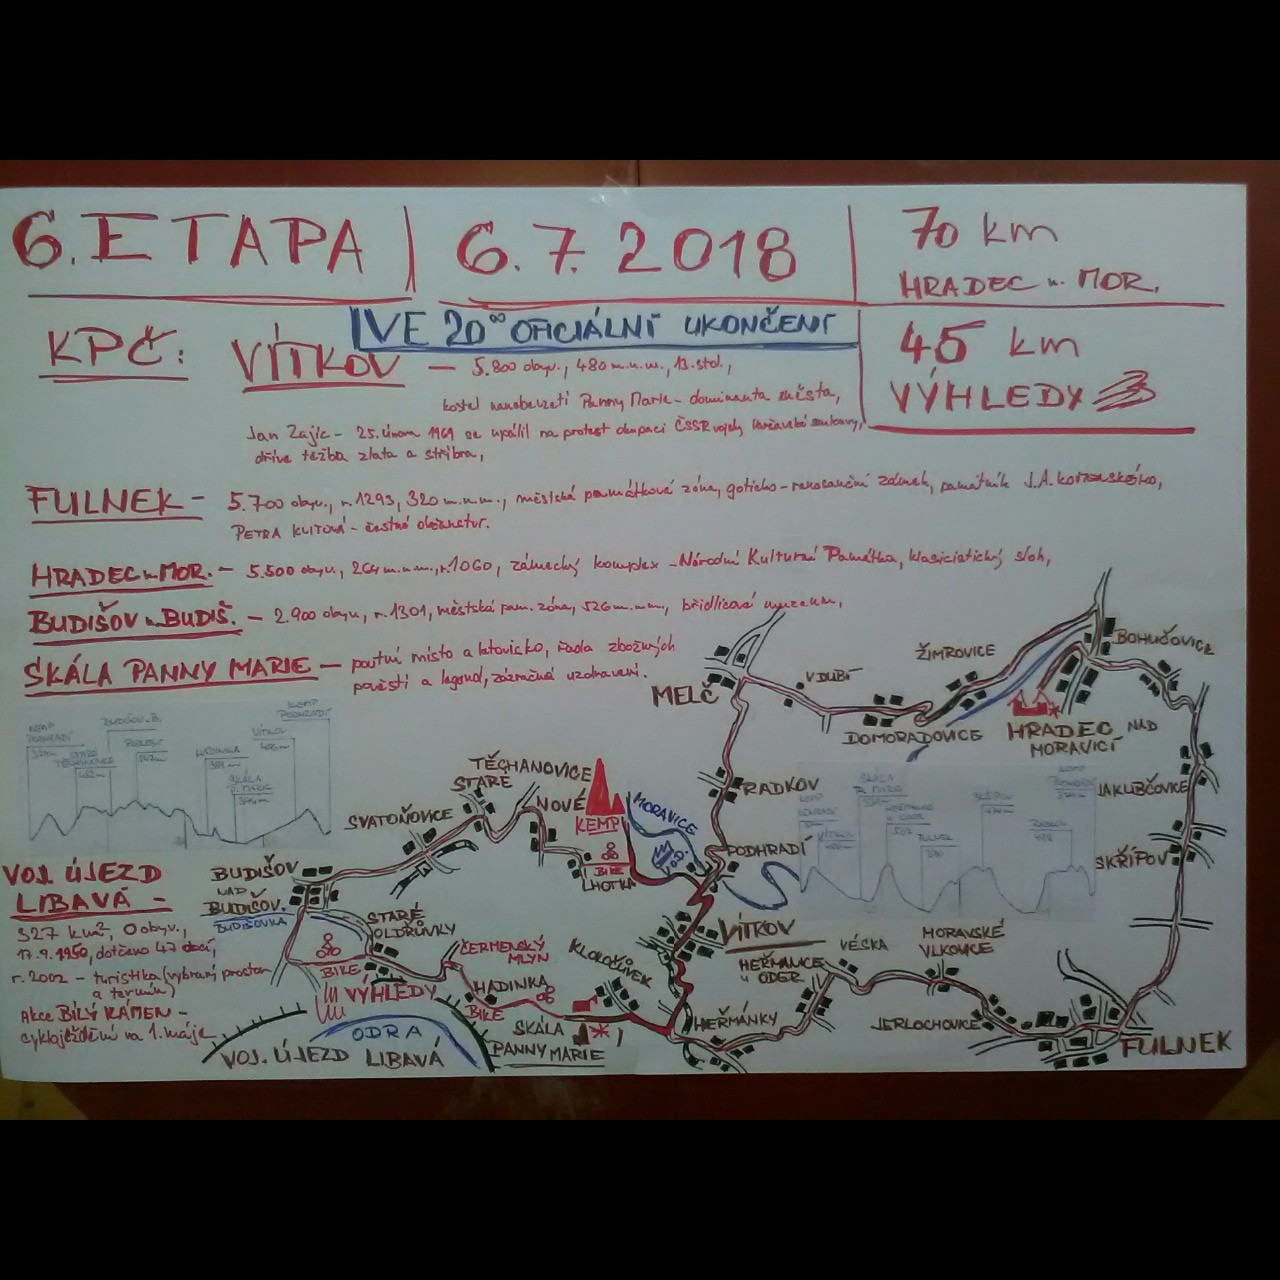 6. ETAPA
6. 7. 2018
70 km
HRADEC n. MOR.
VE 20⁰⁰ OFICIÁLNÍ UKONČENÍ
45 km
VÝHLEDY
KPČ:
VÍTKOV – 5.800 obyv., 480 m.n.m., 13. stol.,
kostel nanebevzetí Panny Marie – dominanta města,
Jan Zajíc – 25. únor 1969 se upálil na protest okupaci ČSSR vojsky Varšavské smlouvy,
dříve těžba zlata a stříbra,
FULNEK – 5.700 obyv., r. 1293, 320 m.n.m., městská památková zóna, goticko-renesanční zámek, památník J.A. KOMENSKÉHO,
PETRA KVITOVÁ – čestné občanství.
HRADEC n. MOR. – 5.500 obyv., 264 m.n.m., r. 1060, zámecký komplex – Národní Kulturní Památka, klasicistický sloh,
BUDIŠOV n. BUDIŠ. – 2.900 obyv., r. 1301, městská pam. zóna, 526 m.n.m., břidlicové muzeum,
SKÁLA PANNY MARIE – poutní místo a letovisko, řada zbožných
pověstí a legend, zázračná uzdravení.
VOJ. ÚJEZD
LIBAVÁ –
327 km², 0 obyv.,
17. 9. 1950, dotčeno 47 obcí,
r. 2002 – turistika (vybraný prostor
a termín)
Akce BÍLÝ KÁMEN –
cykloježdění na 1. máje
MELČ
V DUBÍ
ŽIMROVICE
BOHUČOVICE
DOMORADOVICE
HRADEC NAD
MORAVICÍ
RADKOV
JAKUBČOVICE
TĚCHANOVICE
STARÉ
NOVÉ
KEMP
MORAVICE
SVATOŇOVICE
BIKE
LHOTKA
PODHRADÍ
SKŘIPOV
BUDIŠOV
NAD
BUDIŠOV.
BUDIŠOVKA
STARÉ
OLDŘŮVKY
BIKE
VÝHLEDY
ČERMENSKÝ
MLÝN
KLOKOČŮVEK
VÍTKOV
HEŘMANICE
u ODER
VÉSKA
MORAVSKÉ
VLKOVICE
HADINKA
BIKE
SKÁLA
PANNY MARIE
HEŘMÁNKY
JERLOCHOVICE
FULNEK
ODRA
VOJ. ÚJEZD LIBAVÁ